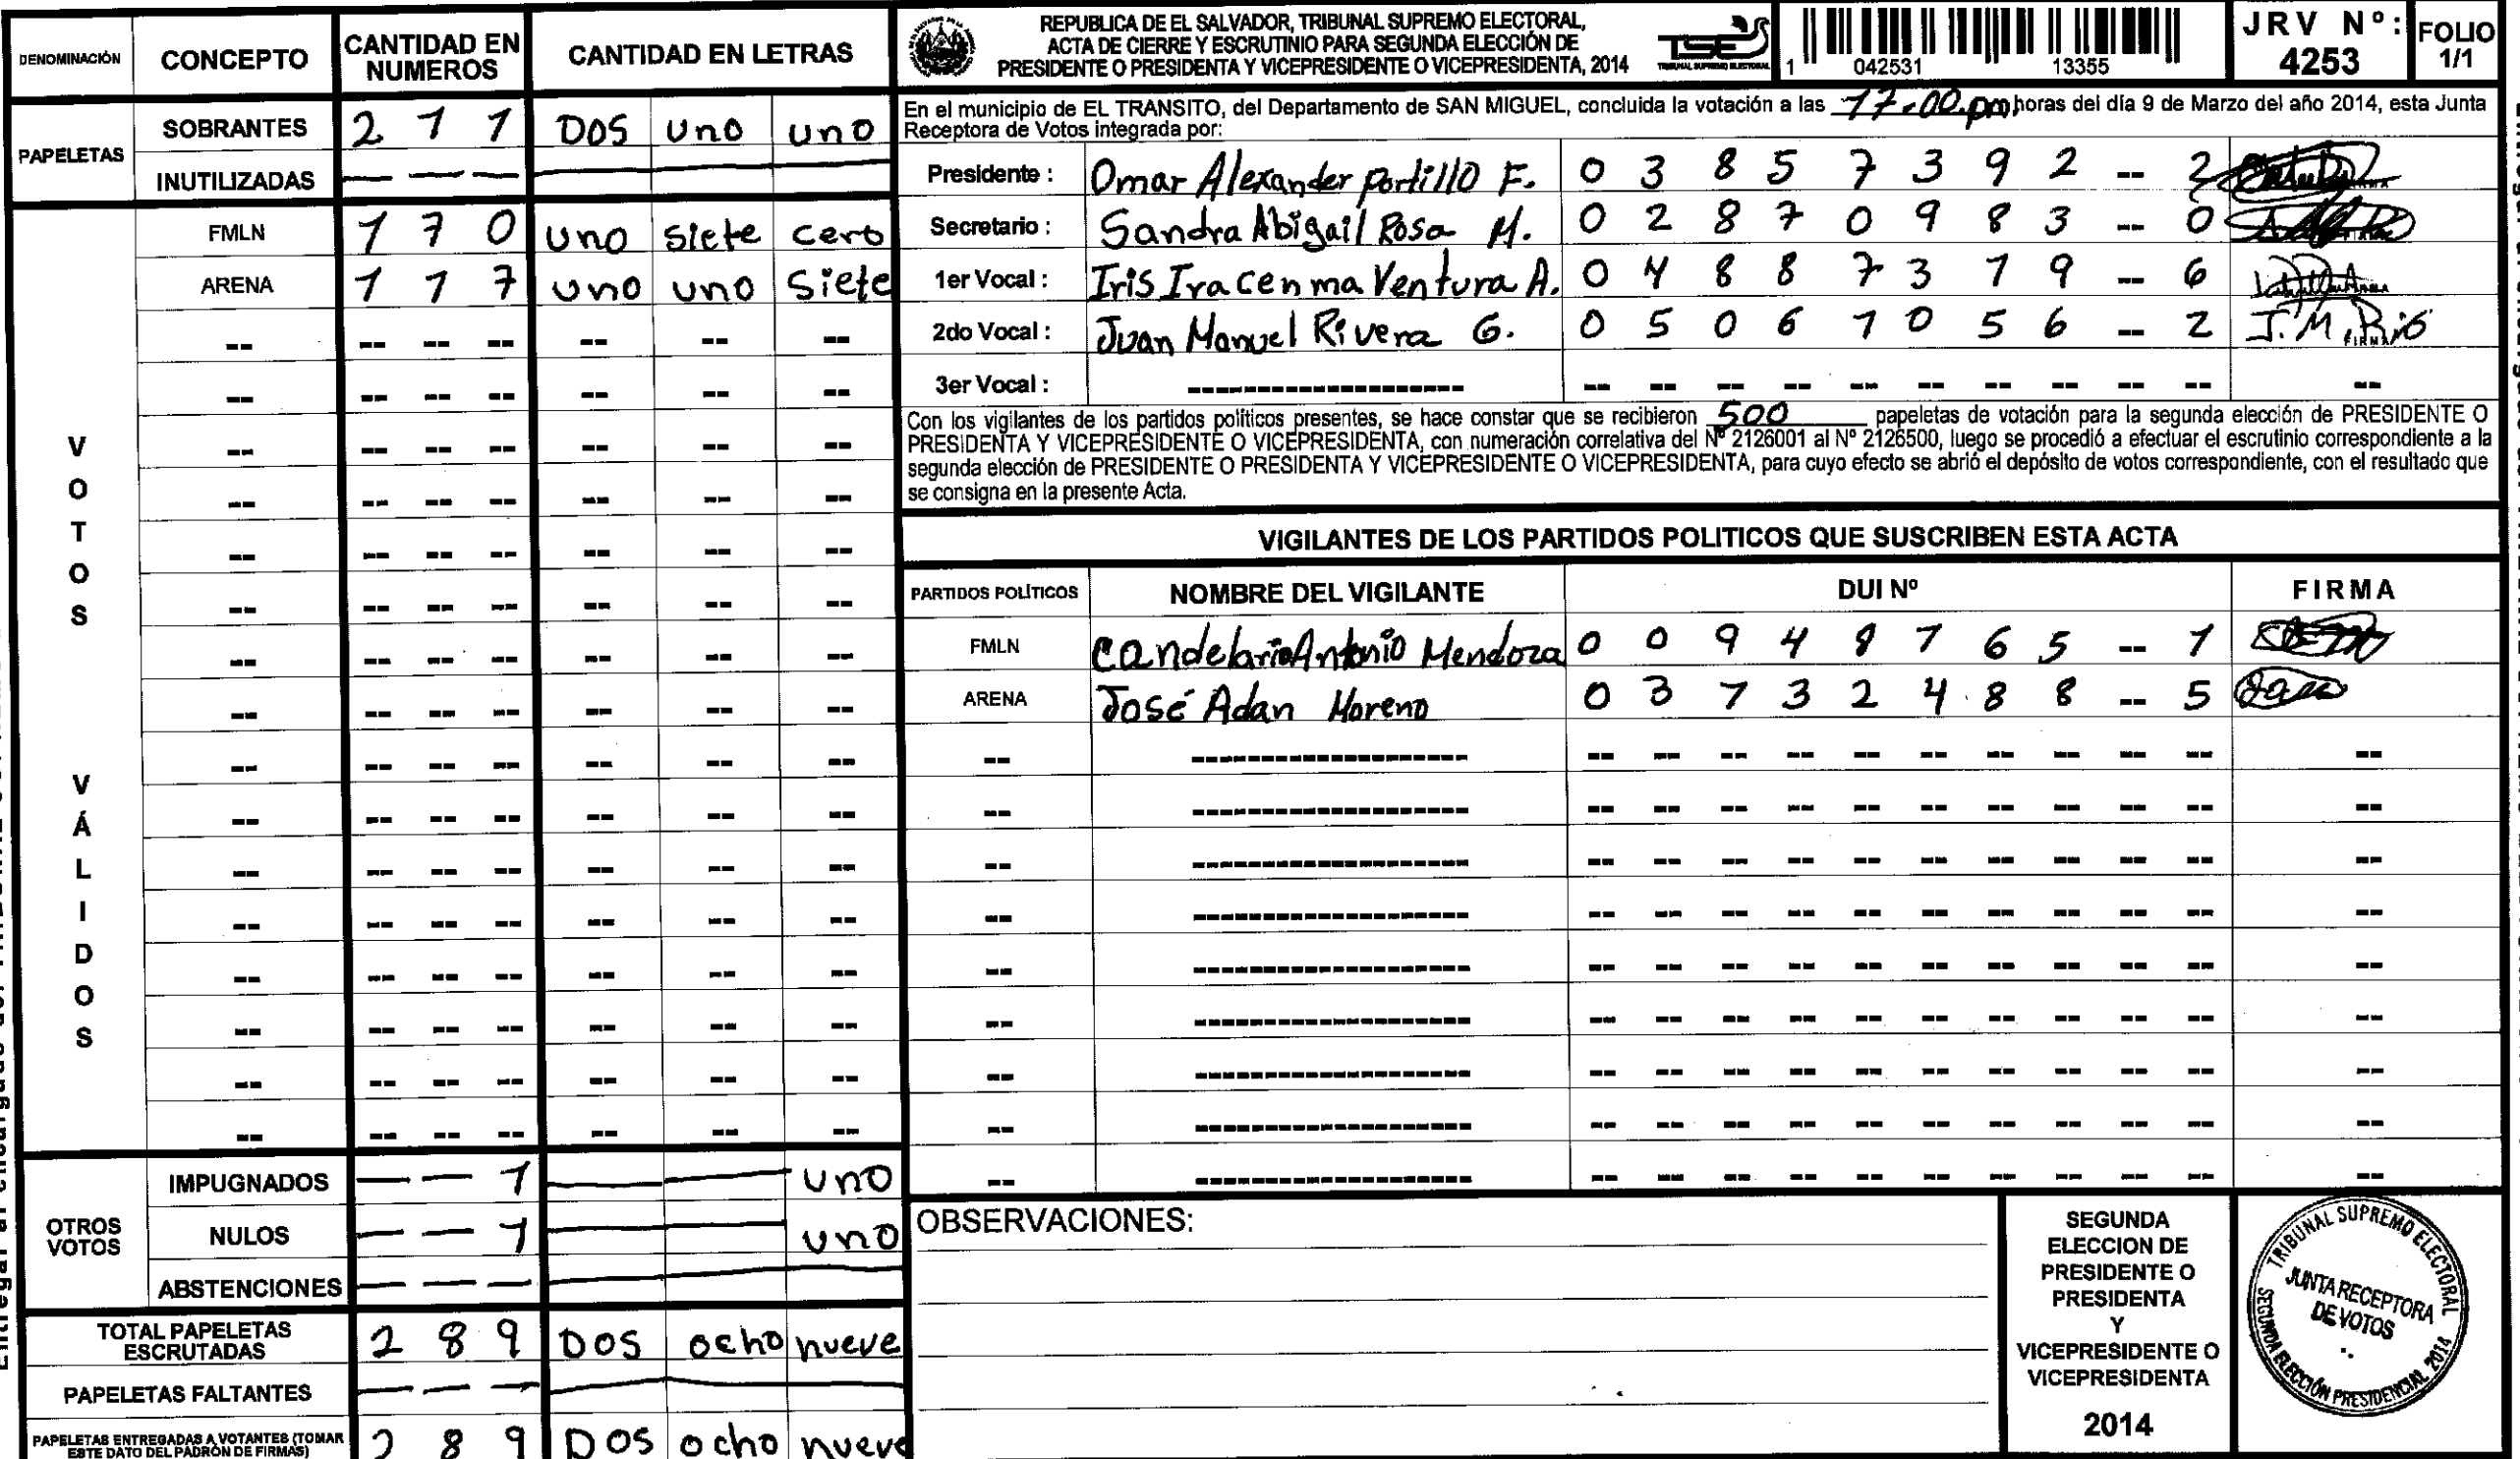 DENOMINACIÓN CONCEPTO CANTIDAD EN NUMEROS CANTIDAD EN LETRAS
PAPELETAS
SOBRANTES 2 1 1 DOS uno uno
INUTILIZADAS — — —
VOTOS VÁLIDOS
FMLN 1 7 0 uno siete cero
ARENA 1 1 7 uno uno siete
OTROS VOTOS
IMPUGNADOS — — 1 uno
NULOS — — 1 uno
ABSTENCIONES — — —
TOTAL PAPELETAS ESCRUTADAS 2 8 9 DOS ocho nueve
PAPELETAS FALTANTES — — —
PAPELETAS ENTREGADAS A VOTANTES (TOMAR ESTE DATO DEL PADRÓN DE FIRMAS) 2 8 9 DOS ocho nueve
REPUBLICA DE EL SALVADOR, TRIBUNAL SUPREMO ELECTORAL,
ACTA DE CIERRE Y ESCRUTINIO PARA SEGUNDA ELECCIÓN DE
PRESIDENTE O PRESIDENTA Y VICEPRESIDENTE O VICEPRESIDENTA, 2014
TSE
TRIBUNAL SUPREMO ELECTORAL
1 042531 13355
JRV Nº: 4253
FOLIO 1/1
En el municipio de EL TRANSITO, del Departamento de SAN MIGUEL, concluida la votación a las 17:00 pm horas del día 9 de Marzo del año 2014, esta Junta
Receptora de Votos integrada por:
Presidente : Omar Alexander Portillo F. 0 3 8 5 7 3 9 2 -- 2
Secretario : Sandra Abigail Rosa M. 0 2 8 7 0 9 8 3 -- 0
1er Vocal : Iris Iracenma Ventura A. 0 4 8 8 7 3 1 9 -- 6
2do Vocal : Juan Manuel Rivera G. 0 5 0 6 1 0 5 6 -- 2 J.M.
3er Vocal :
Con los vigilantes de los partidos políticos presentes, se hace constar que se recibieron 500 papeletas de votación para la segunda elección de PRESIDENTE O
PRESIDENTA Y VICEPRESIDENTE O VICEPRESIDENTA, con numeración correlativa del Nº 2126001 al Nº 2126500, luego se procedió a efectuar el escrutinio correspondiente a la
segunda elección de PRESIDENTE O PRESIDENTA Y VICEPRESIDENTE O VICEPRESIDENTA, para cuyo efecto se abrió el depósito de votos correspondiente, con el resultado que
se consigna en la presente Acta.
VIGILANTES DE LOS PARTIDOS POLITICOS QUE SUSCRIBEN ESTA ACTA
PARTIDOS POLÍTICOS NOMBRE DEL VIGILANTE DUI Nº FIRMA
FMLN Candelario Antonio Mendoza 0 0 9 4 8 7 6 5 -- 1
ARENA José Adan Moreno 0 3 7 3 2 4 8 8 -- 5
OBSERVACIONES:
SEGUNDA
ELECCION DE
PRESIDENTE O
PRESIDENTA
Y
VICEPRESIDENTE O
VICEPRESIDENTA
2014
TRIBUNAL SUPREMO ELECTORAL
JUNTA RECEPTORA
DE VOTOS
SEGUNDA ELECCIÓN PRESIDENCIAL 2014